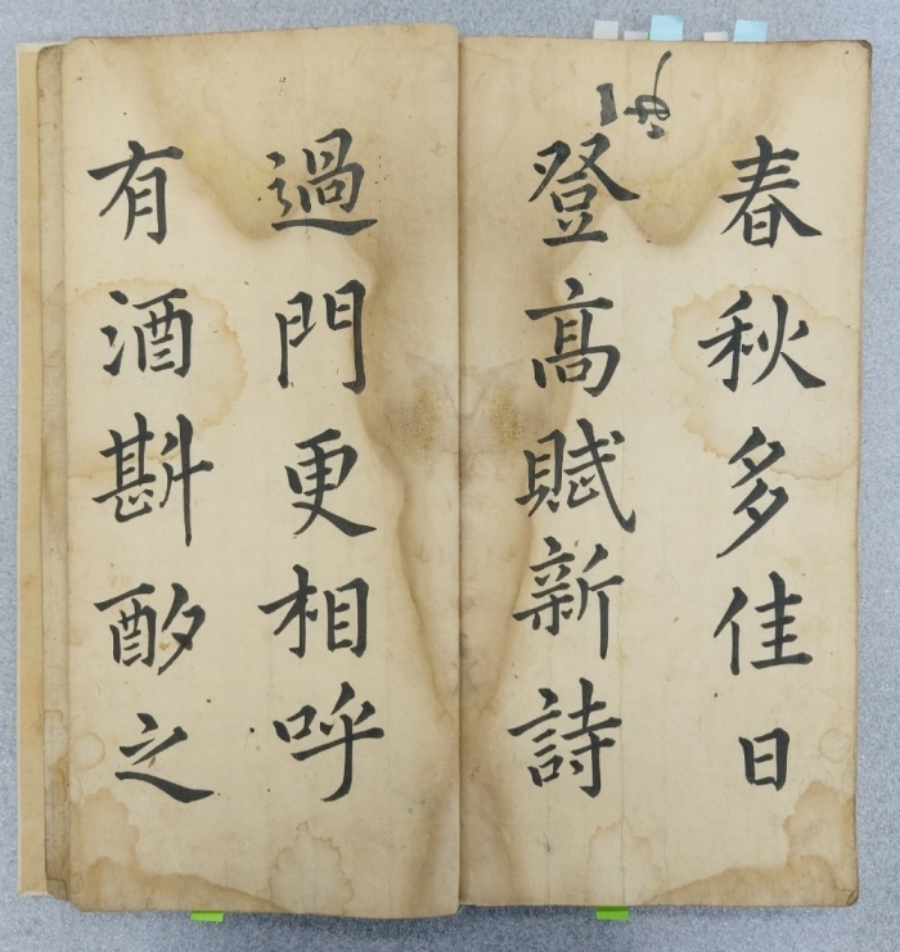 春秋多佳日
登髙賦新詩
過門更相呼
有酒斟酌之